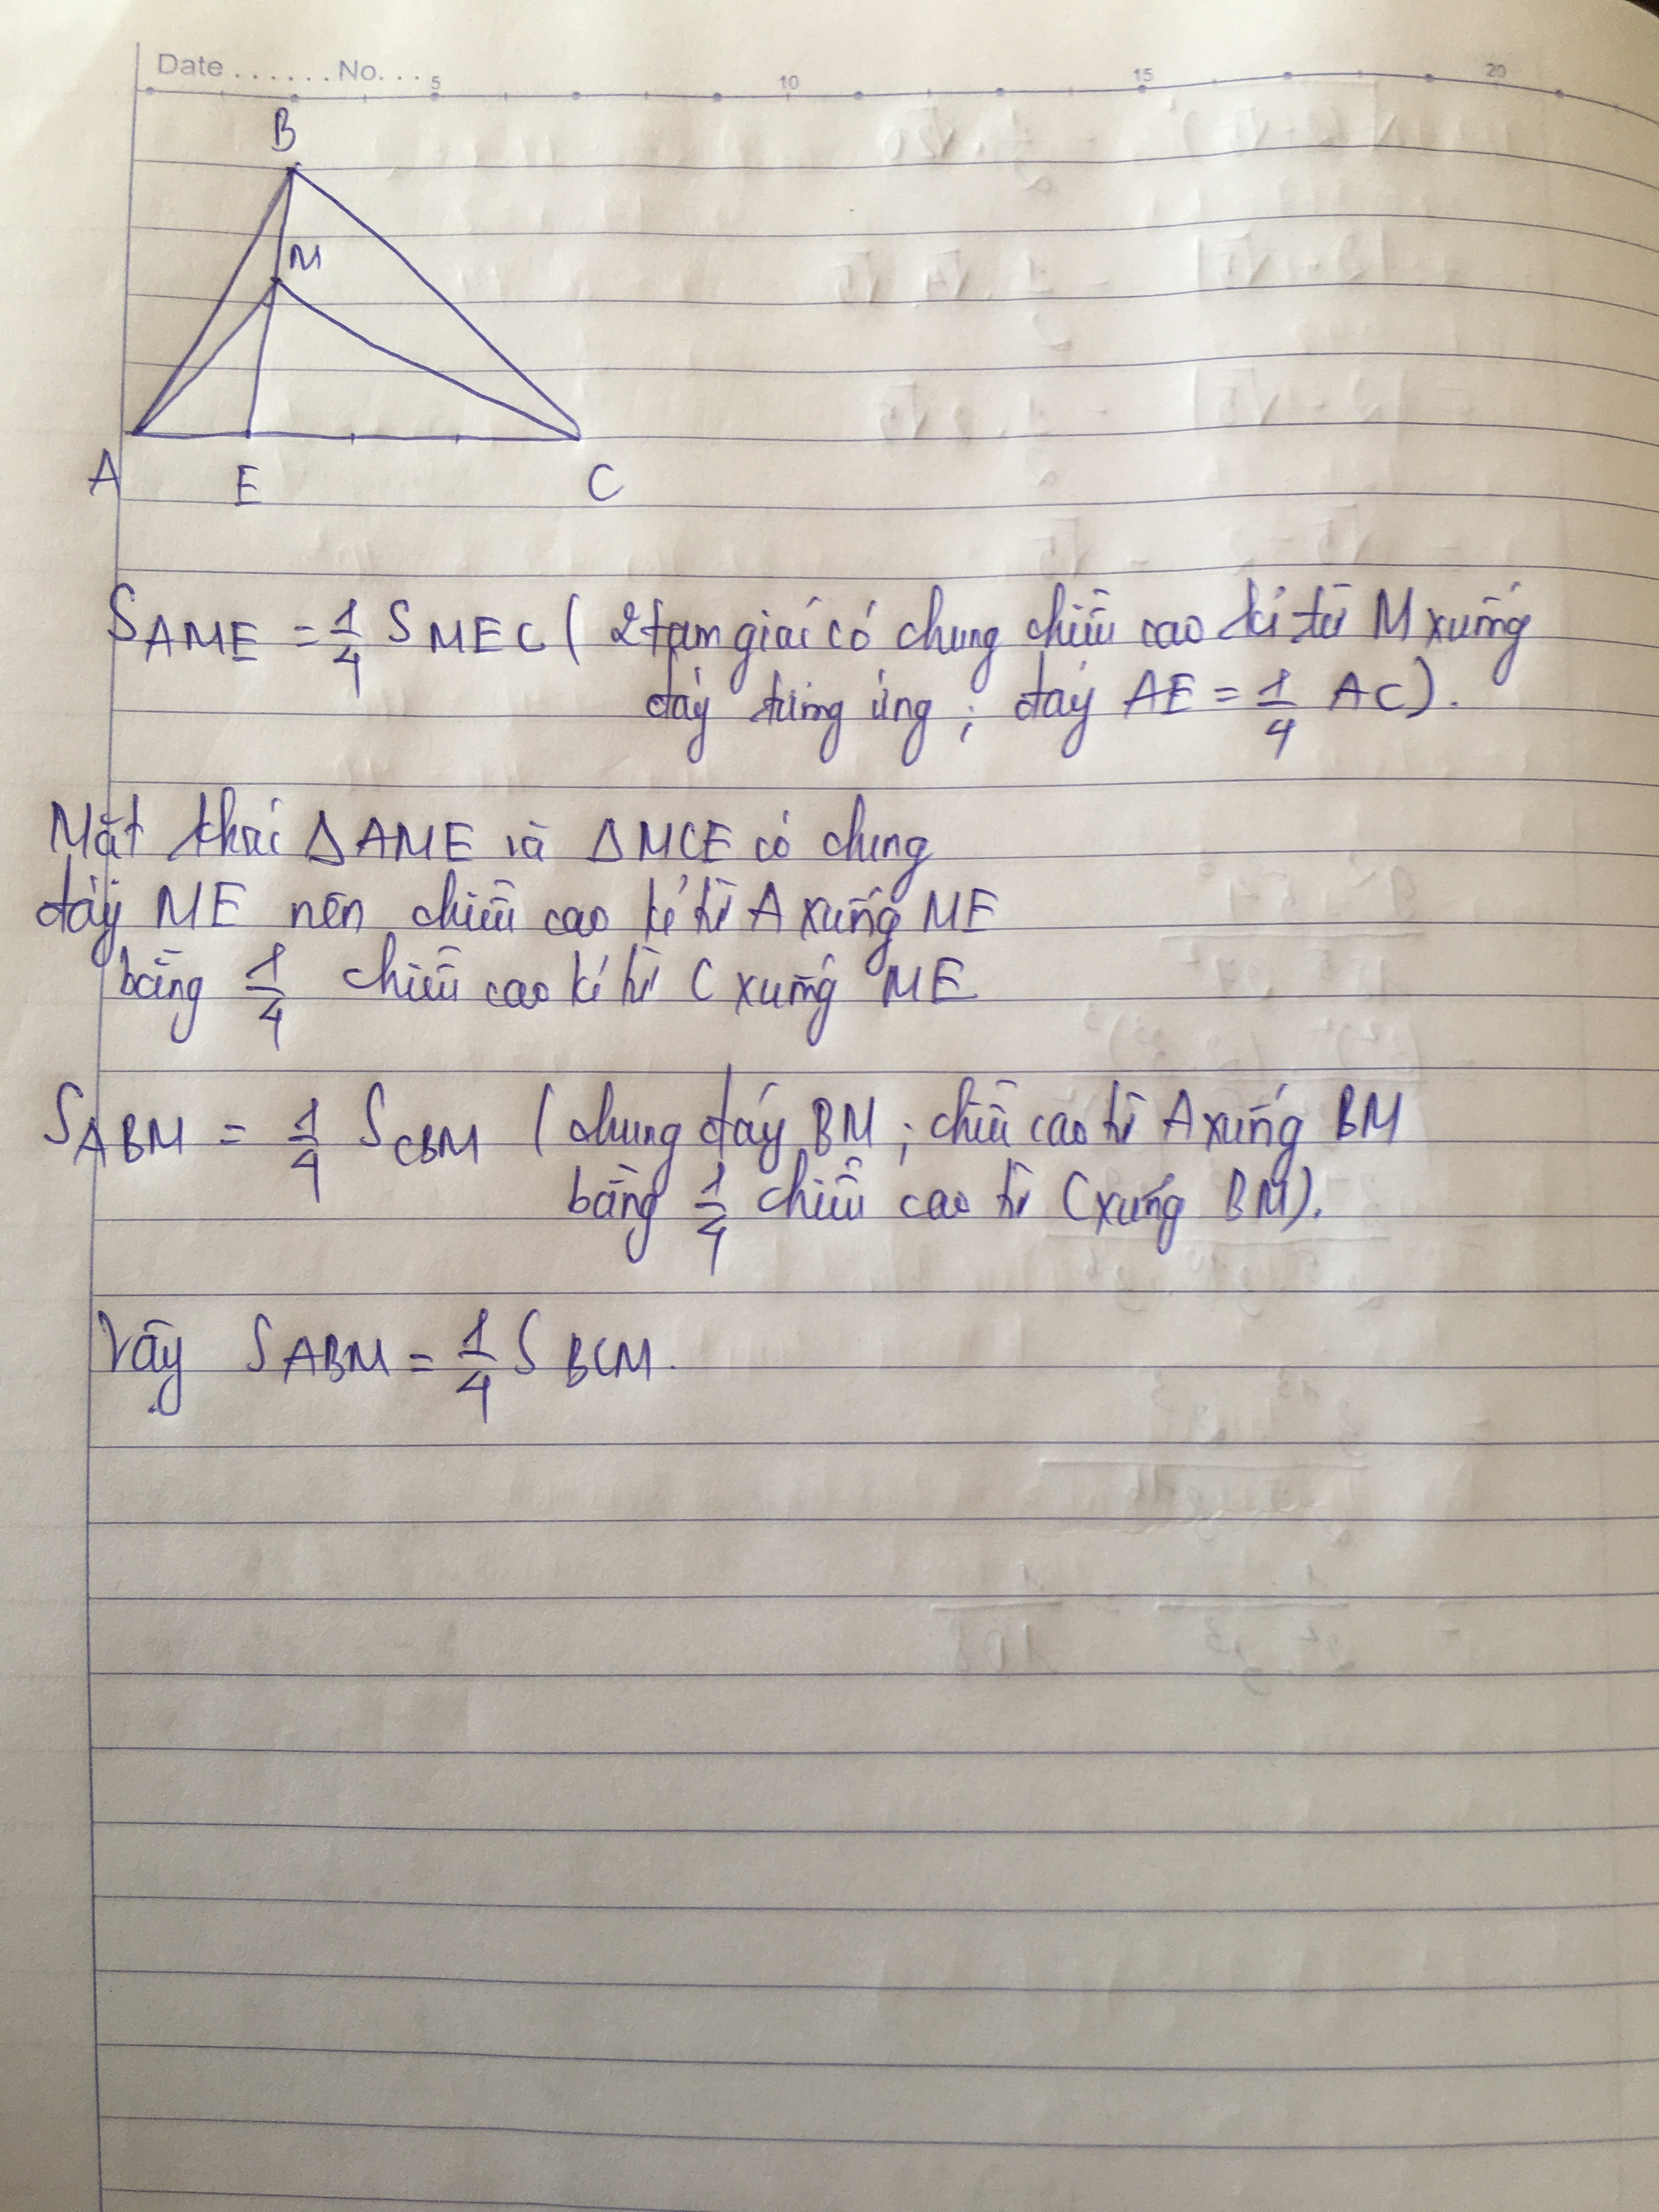 Date ...... No. ... 5 10 15 20
B
M
A E C
S AME = 1/4 S MEC ( 2 tam giác có chung chiều cao kẻ từ M xuống
đáy tương ứng ; đáy AE = 1/4 AC ).
Mặt khác Δ AME và Δ MCE có chung
đáy ME nên chiều cao kẻ từ A xuống ME
bằng 1/4 chiều cao kẻ từ C xuống ME
S ABM = 1/4 S CBM ( chung đáy BM ; chiều cao từ A xuống BM
bằng 1/4 chiều cao từ C xuống BM).
Vậy S ABM = 1/4 S BCM.